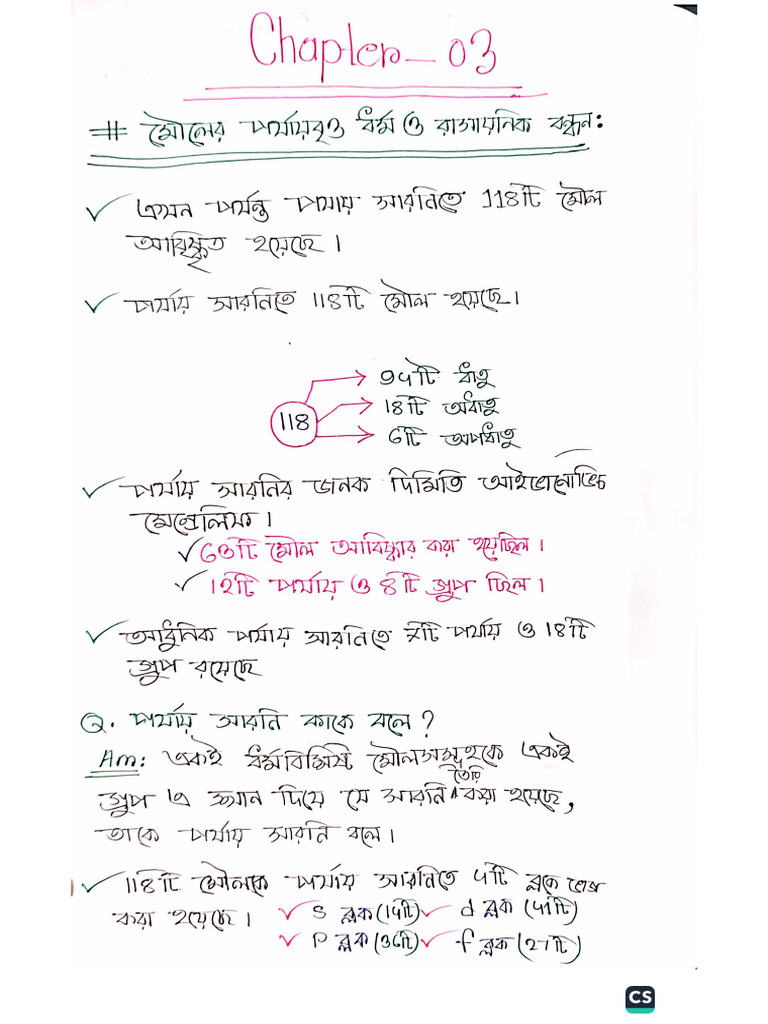 Chapter-03
# মৌলের পর্যায়বৃত্ত ধর্ম ও রাসায়নিক বন্ধন:
এখন পর্যন্ত পযায় সারনিতে 118টি মৌল
আয়িষ্কৃত হয়েছে।
পর্যায় সারনিতে 118টি মৌল হয়েছে।
118
94টি ধাতু
18টি অধাতু
6টি অপধাতু
পর্যায় সারনির জনক দিমিতি আইভানোভিচ
মেন্ডেলিফ।
63টি মৌল আবিষ্কার করা হয়েছিল।
12টি পর্যায় ও 8টি গ্রুপ ছিল।
আধুনিক পর্যায় সারনিতে টি পর্যায় ও 18টি
গ্রুপ রয়েছে
Q. পর্যায় সারনি কাকে বলে?
Ans: একই ধর্মবিশিষ্ট মৌলসমূহকে একই
গ্রুপ এ স্থান দিয়ে যে সারনি তৈরি করা হয়েছে,
তাকে পর্যায় সারনি বলে।
118টি মৌলকে পর্যায় সারনিতে 4টি ব্লকে
করা হয়েছে। s ব্লক(14টি) d ব্লক (41টি)
p ব্লক(36টি) f ব্লক(27টি)
CS